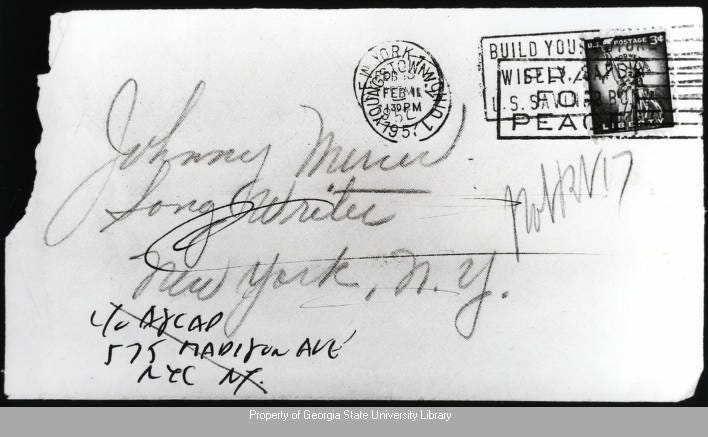 NEW YORK
YOUNGSTOWN OHIO
FEB 11
130 PM
1957
BUILD YOUR
WISELY
U.S. SAVINGS BONDS
PRAY
FOR
PEACE
U.S. POSTAGE 3¢
LIBERTY
Johnny Mercer
Song Writer
New York, N.Y.
c/o ASCAP
575 MADISON AVE
NYC NY.
Property of Georgia State University Library